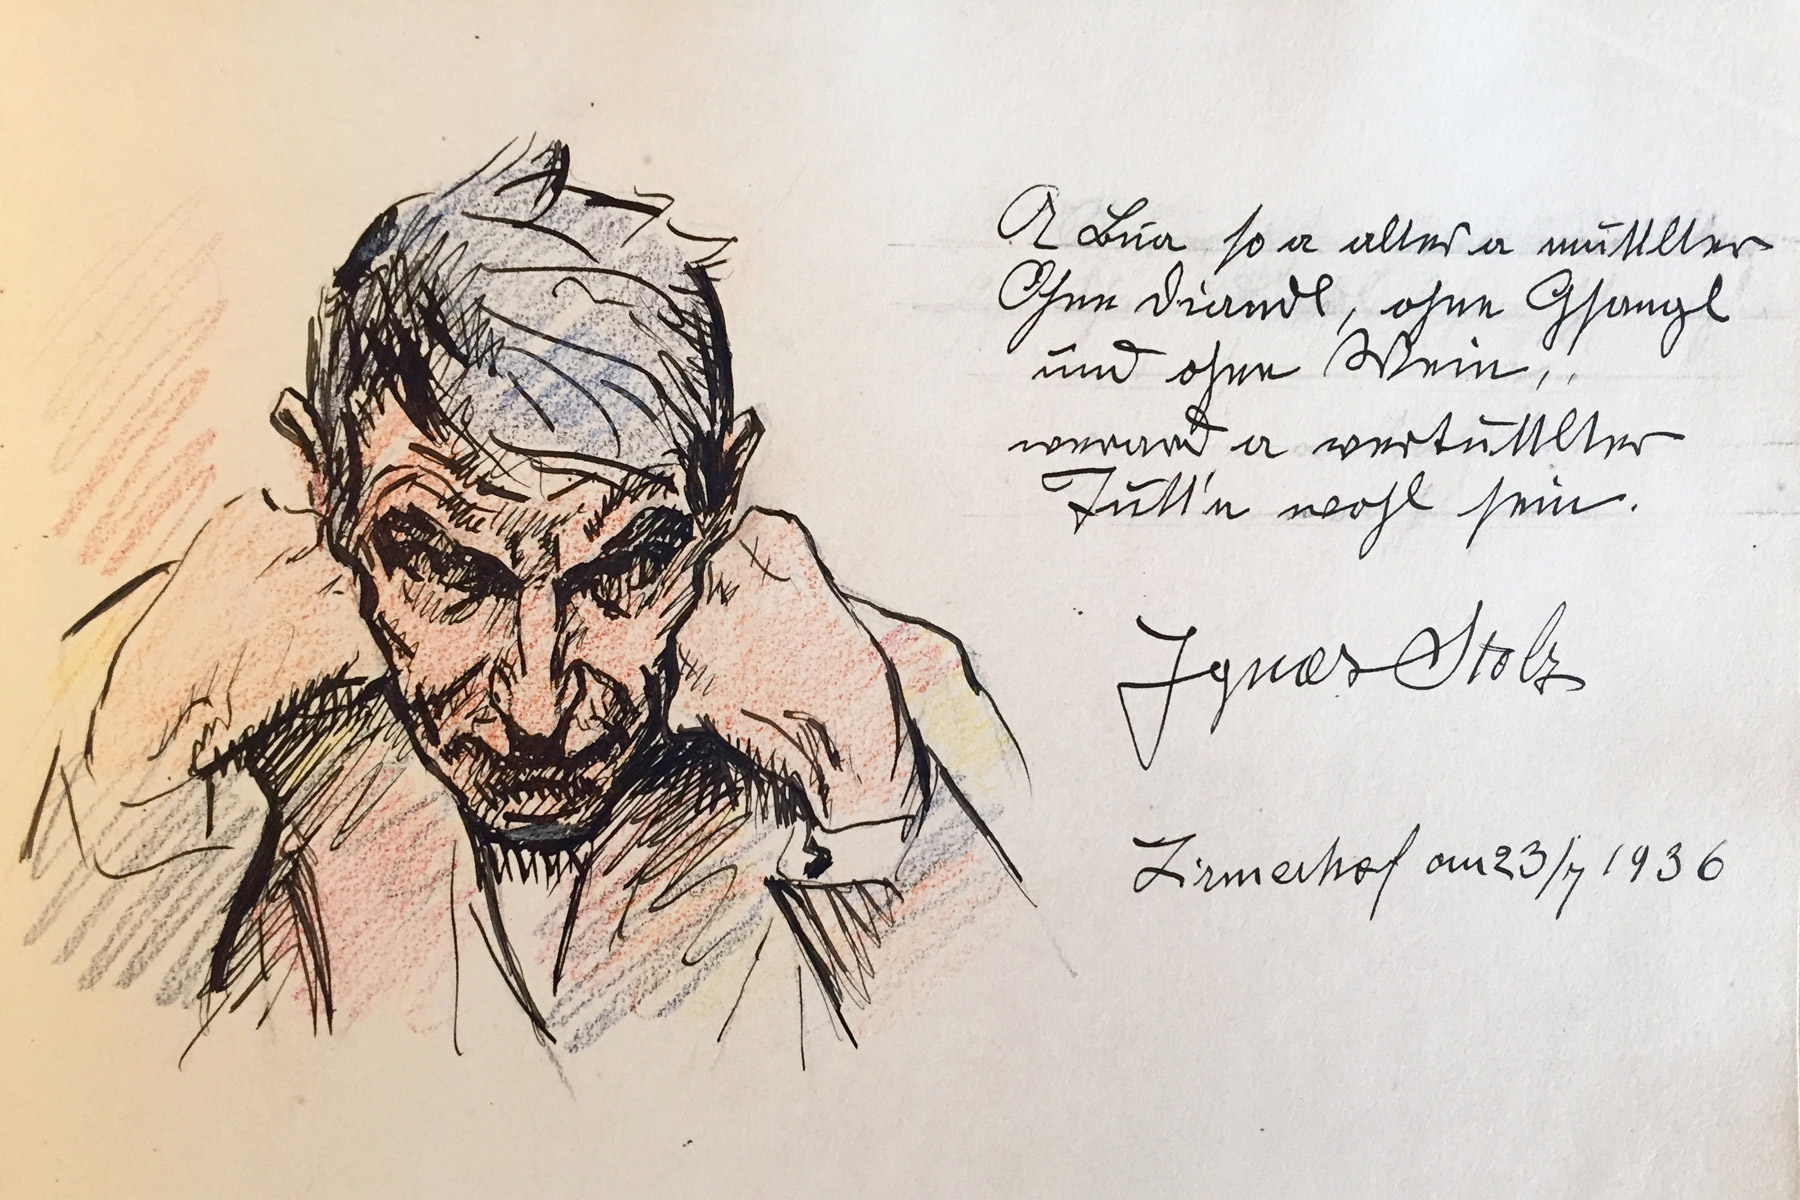 A Bua so a alter a muttlter
Ohne Diandl, ohne Gsangl
und ohne Wein,
werard a vertuttlter
Tutt'n wohl sein.
Ignaz Stolz
Zirmerhof am 23/7 1936